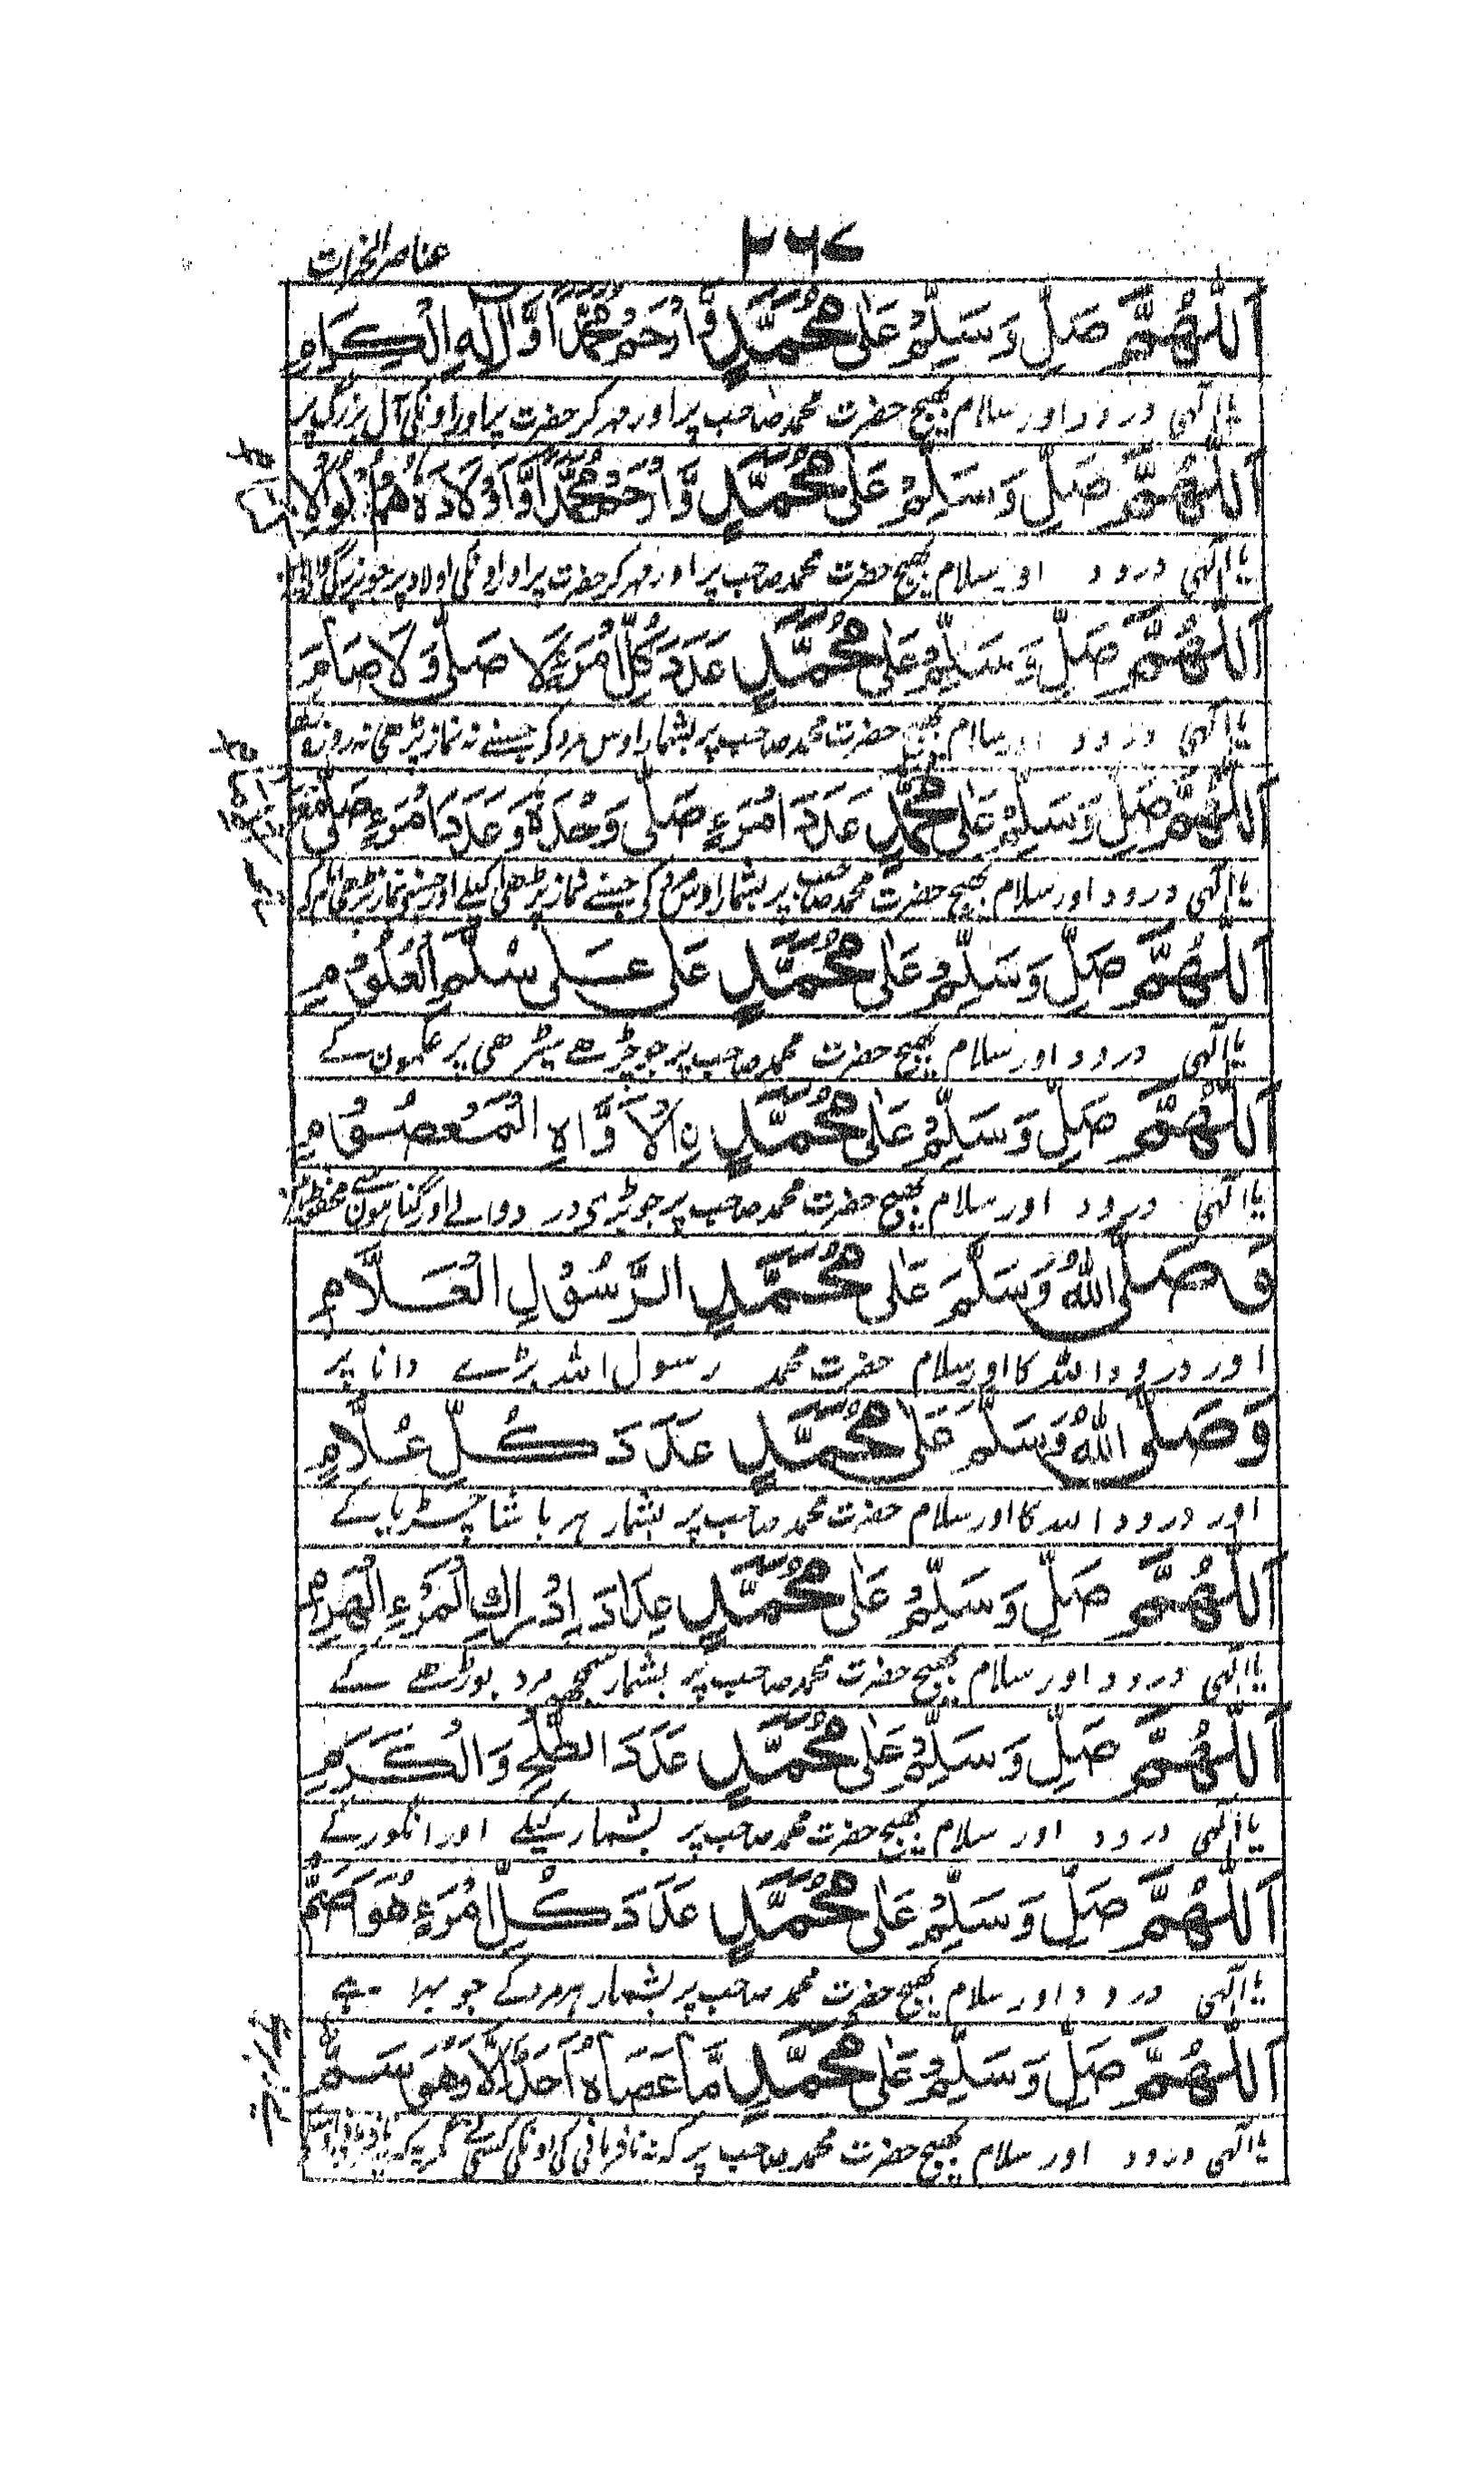 ۲۶۷
عناصر الخیرات
اَللّٰهُمَّ صَلِّ وَسَلِّمْ عَلٰى مُحَمَّدٍ وَّارْحَمْ مُحَمَّدًا وَّاٰلَهِ الْكِرَامِ
یا الٰہی درود اور سلام بھیج حضرت محمد صاحب پر اور مہر کر حضرت پر اور اونکی آل بزرگ پر
اَللّٰهُمَّ صَلِّ وَسَلِّمْ عَلٰى مُحَمَّدٍ وَّارْحَمْ مُحَمَّدًا وَّاَوْلَادَهُ هُمْ
یا الٰہی درود اور سلام بھیج حضرت محمد صاحب پر اور مہر کر حضرت پر اور اونکی اولاد پر جو بزرگی
اَللّٰهُمَّ صَلِّ وَسَلِّمْ عَلٰى مُحَمَّدٍ عَدَدَ كُلِّ امْرَءٍ لَا صَلّٰى وَلَا صَامَ
یا الٰہی درود اور سلام بھیج حضرت محمد صاحب پر بشمار اوس مرد کر جسنے نہ نماز پڑھی نہ روزہ
اَللّٰهُمَّ صَلِّ وَسَلِّمْ عَلٰى مُحَمَّدٍ عَدَدَ امْرَءٍ صَلّٰى وَحْدَهٗ وَعَدَدَ امْرَءٍ صَلّٰى
یا الٰہی درود اور سلام بھیج حضرت محمد صاحب پر بشمار اوس کی جسنے نماز پڑھی اکیلے اور جسنے نماز پڑھی
اَللّٰهُمَّ صَلِّ وَسَلِّمْ عَلٰى مُحَمَّدٍ عَلٰى عَلٰى سُلَّمِ الْعُلُوْمِ
یا الٰہی درود اور سلام بھیج حضرت محمد صاحب پر جو چڑھے سیڑھی پر علمون کے
اَللّٰهُمَّ صَلِّ وَسَلِّمْ عَلٰى مُحَمَّدٍ نِ الْاَوَّاهِ الْمَعْصُوْمِ
یا الٰہی درود اور سلام بھیج حضرت محمد صاحب پر جو بڑی درد والے اور گناہون سے محفوظ
وَصَلَّى اللّٰهُ وَسَلَّمَ عَلٰى مُحَمَّدٍ الرَّسُوْلِ الْعَلَّامِ
اور درود اللہ کا اور سلام حضرت محمد رسول اللہ بڑے دانا پر
وَصَلَّى اللّٰهُ وَسَلَّمَ عَلٰى مُحَمَّدٍ عَدَدَ كُلِّ عُلَّامٍ
اور درود اللہ کا اور سلام حضرت محمد صاحب پر بشمار ہر باشا چڑیا کے
اَللّٰهُمَّ صَلِّ وَسَلِّمْ عَلٰى مُحَمَّدٍ عِدَادَ اِدْرَاكِ الْمَرْءِ الْهَرِمِ
یا الٰہی درود اور سلام بھیج حضرت محمد صاحب پر بشمار سمجھ مرد بوڑھے کے
اَللّٰهُمَّ صَلِّ وَسَلِّمْ عَلٰى مُحَمَّدٍ عَدَدَ الطَّلْحِ وَالْكَرَمِ
یا الٰہی درود اور سلام بھیج حضرت محمد صاحب پر بشمار کیلے اور انگور کے
اَللّٰهُمَّ صَلِّ وَسَلِّمْ عَلٰى مُحَمَّدٍ عَدَدَ كُلِّ امْرَءٍ هُوَ اَصَمُّ
یا الٰہی درود اور سلام بھیج حضرت محمد صاحب پر بشمار ہر مرد کے جو بہرا ہے
اَللّٰهُمَّ صَلِّ وَسَلِّمْ عَلٰى مُحَمَّدٍ مَّا عَصَاهُ اَحَدٌ اِلَّا وَهُوَ
یا الٰہی درود اور سلام بھیج حضرت محمد صاحب پر کہ نہ نافرمانی کی اونکی کسی نے مگر یہ کہ